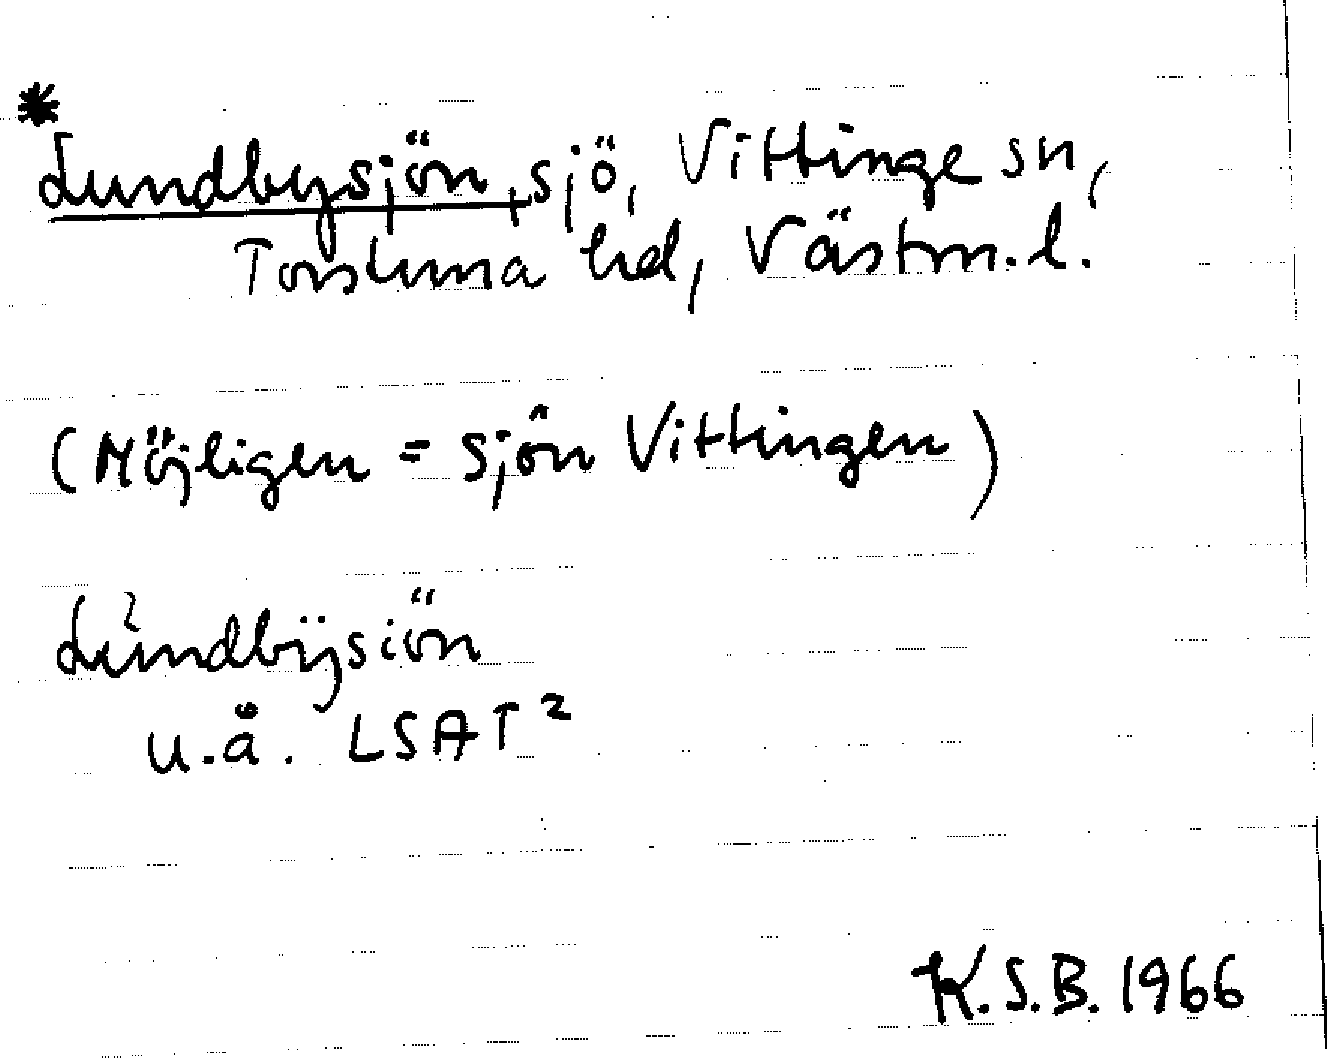 *
Lundbysjön, sjö, Vittinge sn,
Torstuna hd, Västm. l.
(Möjligen = sjön Vittingen)
Lúndbÿsiön
u.å. LSAT²
K.S.B. 1966